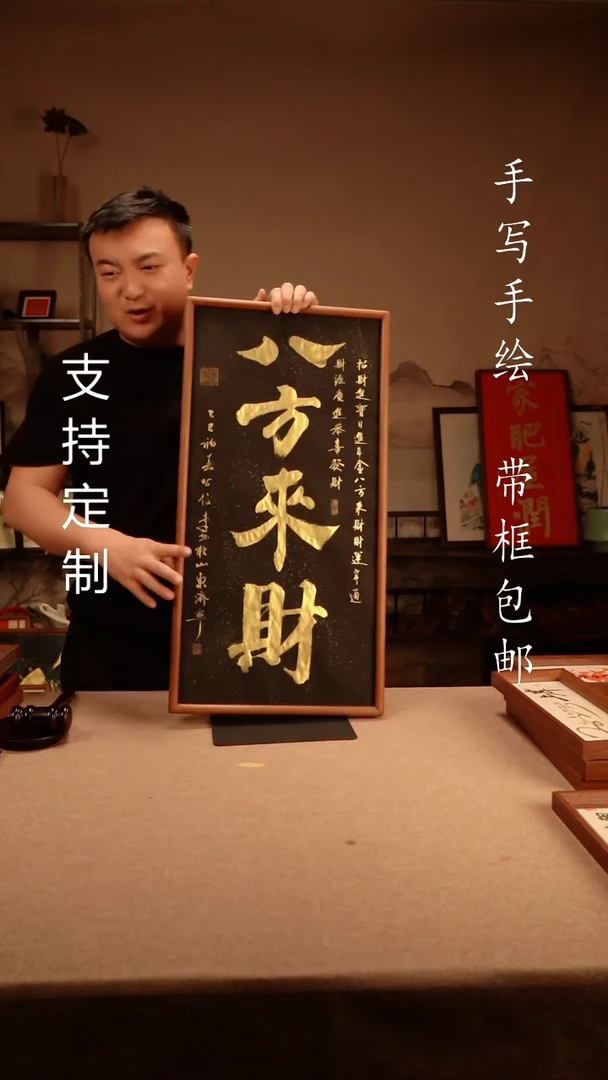 手写手绘 带框包邮
支持定制
八方來財
招財進寶日進斗金八方來財財運亨通
財源廣進恭喜發財
家肥屋潤